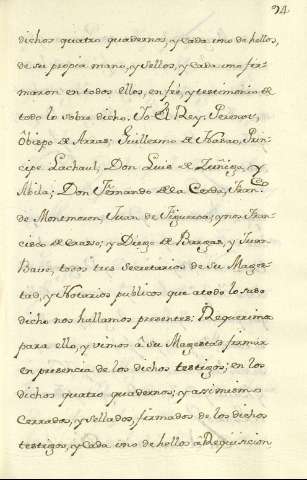 24.
dichos quatro quadernos, y Cada uno de hellos,
de su propia mano, y Sellos, y Cada uno fir-
maron en todos ellos, en feé, y testimonio de
todo lo sobre dicho. Yo El Rey. Perenot,
Obispo de Arras; Guillermo de Nasao, Prin-
cipe Lachaul; Don Luis de Zuñiga, y
Abila; Don Fernando de la Cerda, Fran.co
de Montmoron, Juan de Figueroa; y nos Fran-
cisco de Eraso; y Diego de Bargas, y Juan
Baue, todos tres Secretarios de Su Mages-
tad, y Notarios publicos que a todo lo suso
dicho nos hallamos presentes: Requerimos
para ello, y vimos â su Magestad firmár
en presencia de los dichos testigos; en los
dichos quatro quadernos; y assimismo
Cerrados, y Sellados, firmados de los dichos
testigos, y Cada uno de hellos â Requisicion